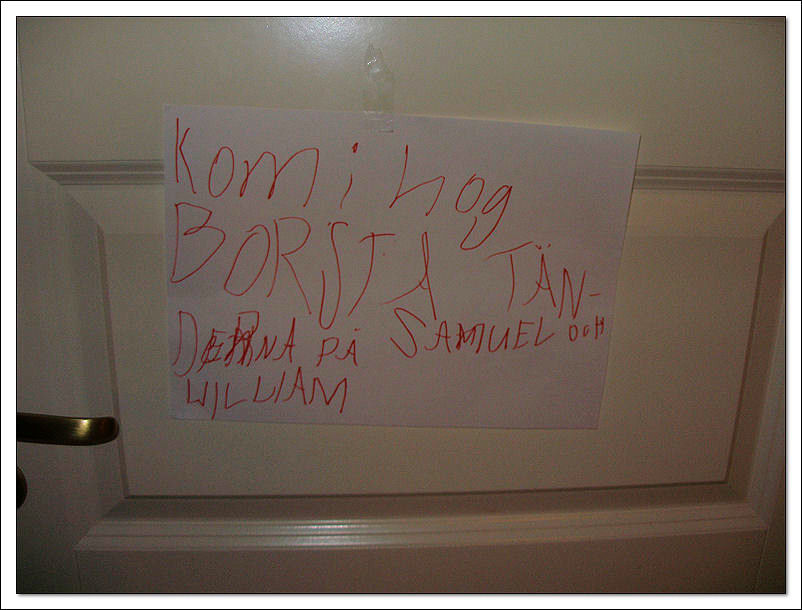 Kom i hog
BORSTA TÄN-
DERNA PÅ SAMUEL OCH
WILLIAM